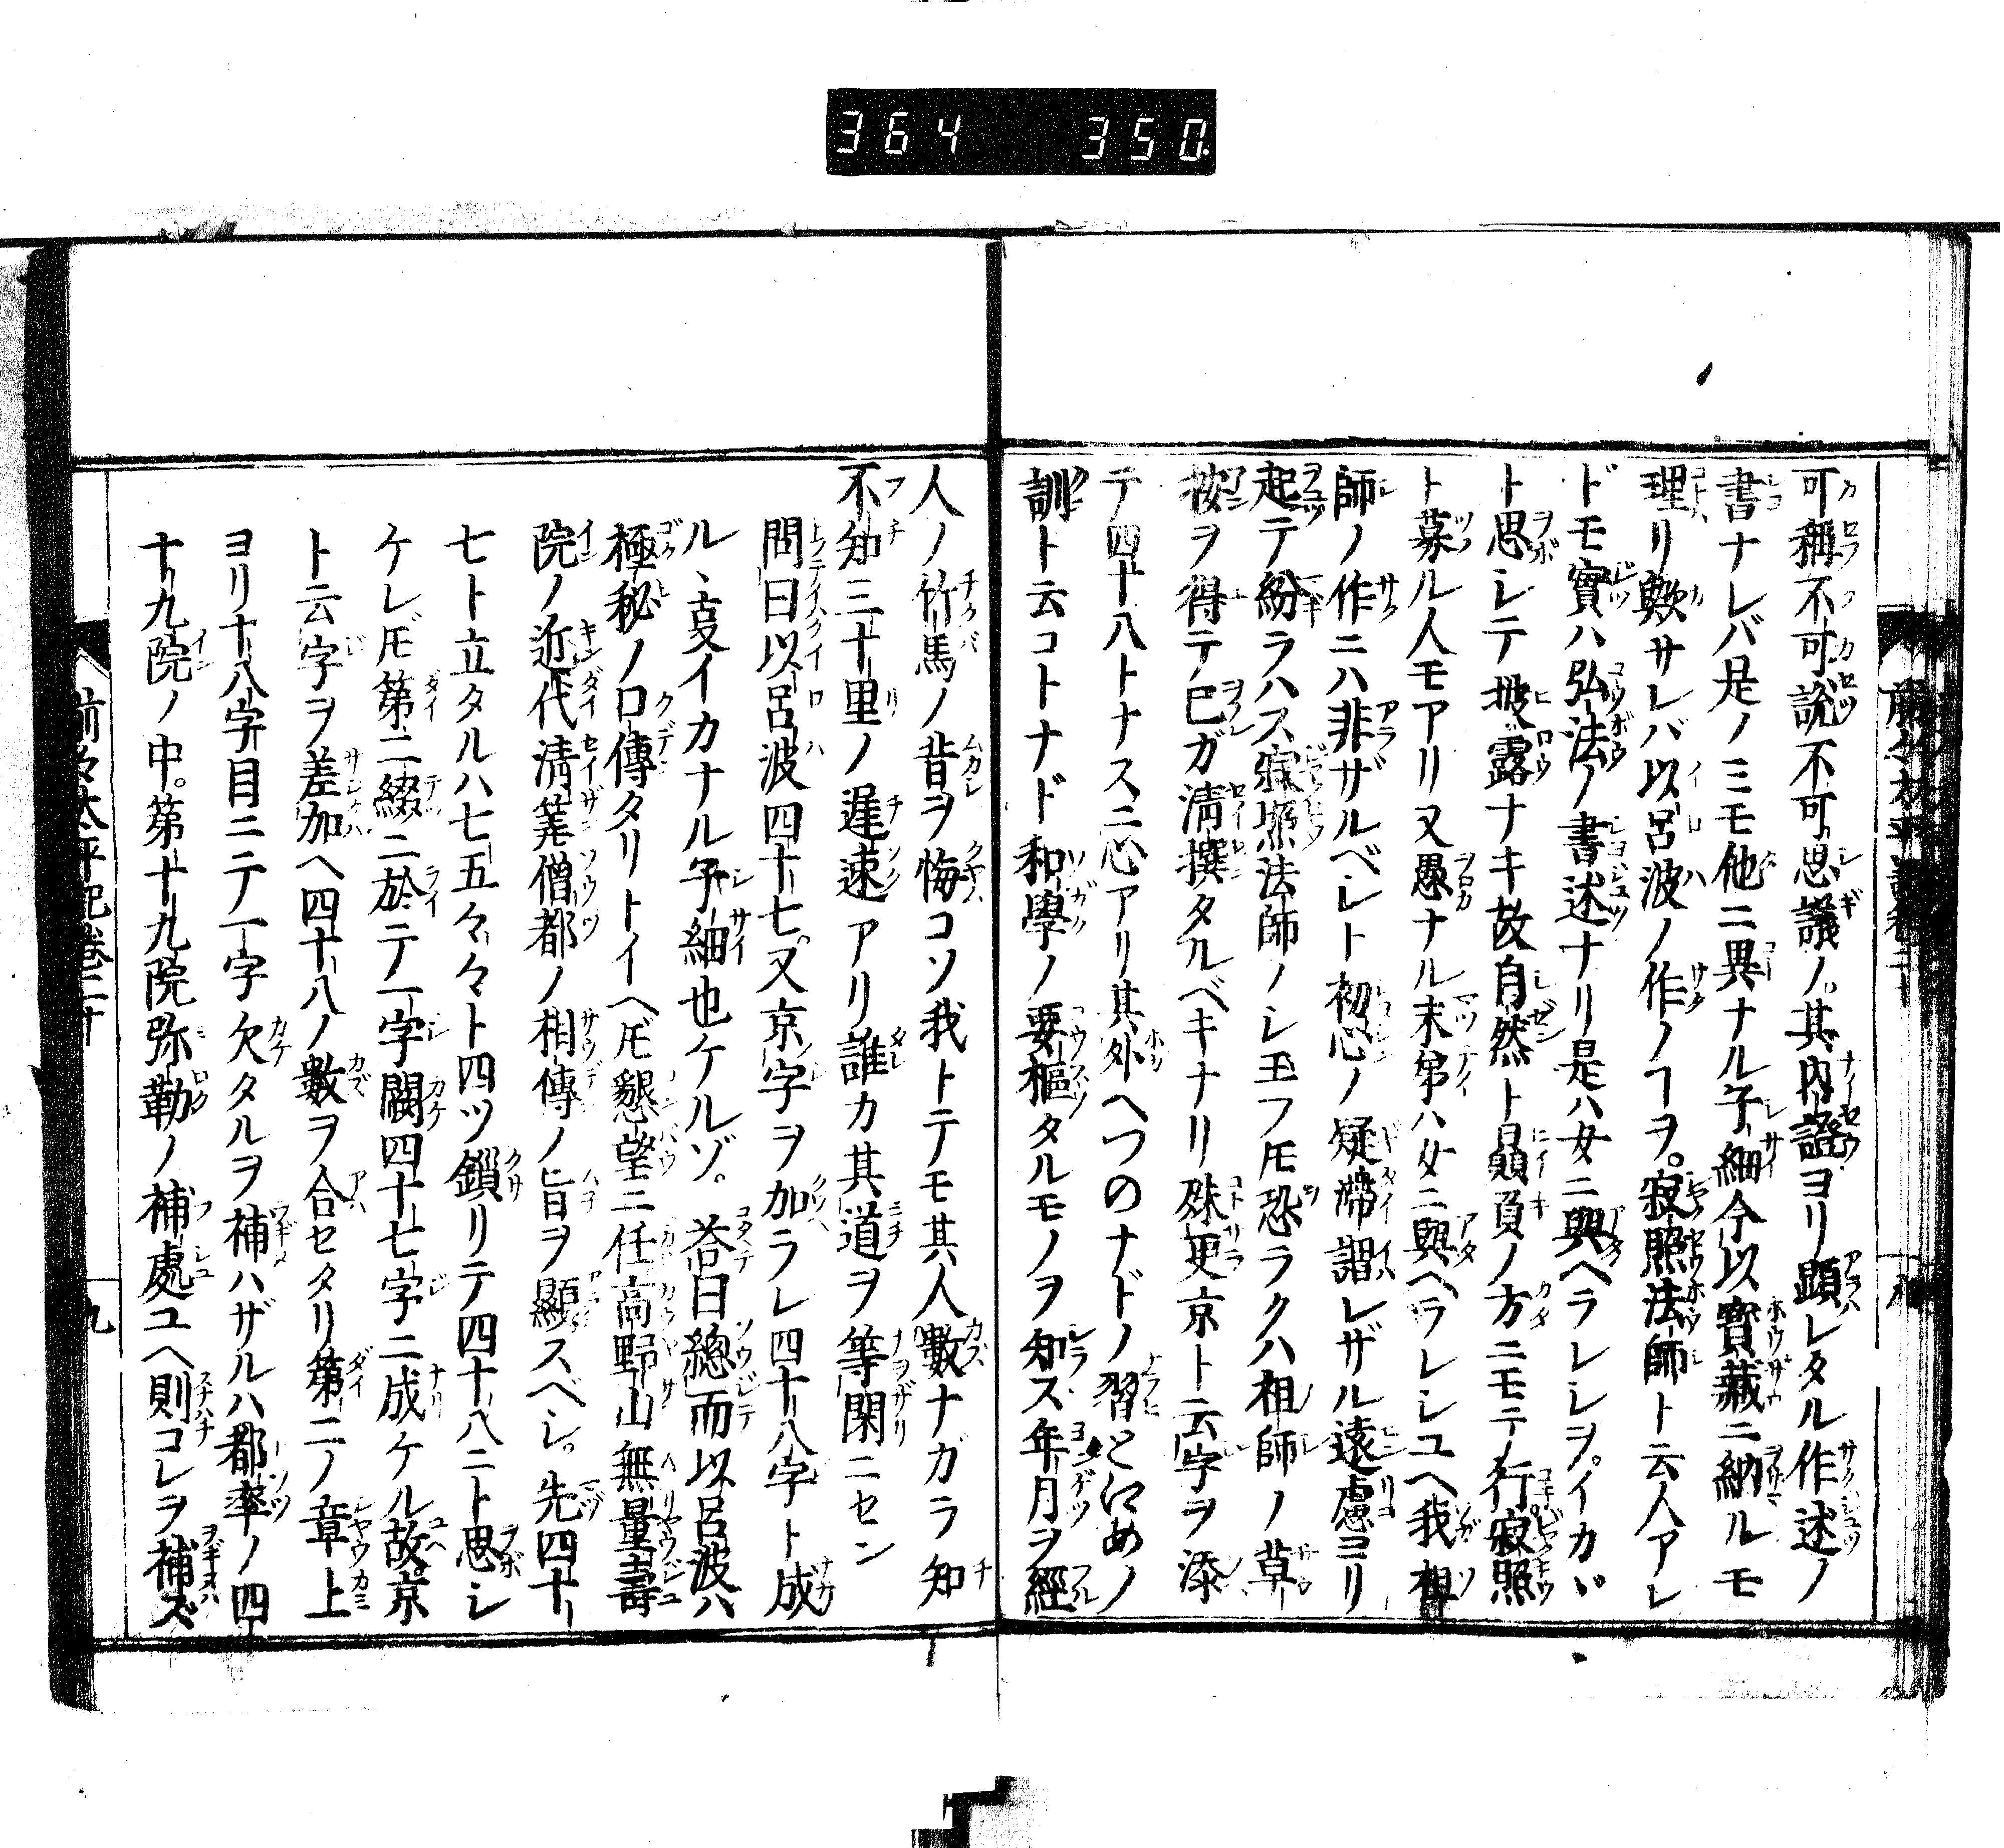 364 350.
可稱不可說不可思議ノ其内證ヨリ顕レタル作述ノ
書ナレバ是ノミモ他ニ異ナル子細今以寳藏ニ納ルモ
理リ歟サレバ以呂波ノ作ノヿヲ。寂照法師ト云人アレ
ドモ實ハ弘法ノ書述ナリ是ハ女ニ與ヘラレシヲ。イカヾ
ト思シテ披露ナキ故自然ト贔負ノ方ニモテ行寂照
ト募ル人モアリ又愚ナル末弟ハ女ニ與ヘラレシユヘ我祖
師ノ作ニハ非ザルベシト初心ノ疑滯謂レザル遠慮ヨリ
起テ紛ラハス寂照法師ノシ玉フ𪜈恐ラクハ祖師ノ草
按ヲ得テ已ガ清撰タルベキナリ殊更京ト云字ヲ添
テ四十八トナス二心アリ其外へつのナドノ習とにめノ
訓ト云コトナド和學ノ要樞タルモノヲ知ス年月ヲ經
人ノ竹馬ノ昔ヲ悔コソ我トテモ其人數ナガラ知
不知三十里ノ遲速アリ誰カ其道ヲ等閑ニセン
問曰以呂波四十七。又京ノ字ヲ加ラレ四十八字ト成
ルヽ叓イカナル子細也ケルゾ。荅曰總而以呂波ハ
極秘ノ口傳タリトイヘ𪜈懇望ニ任高野山無量壽
院ノ近代淸筭僧都ノ相傳ノ旨ヲ顯スベシ。先四十
七ト立タルハ七五々々ト四ツ鎻リテ四十八ニト思シ
ケレ𪜈第二綴ニ於テ一字闕四十七字ニ成ケル故。京
ト云字ヲ差加ヘ四十八ノ數ヲ合セタリ第二ノ章上
ヨリ十八字目ニテ一字欠タルヲ補ハザルハ都率ノ四
十九院ノ中。第十九院弥勒ノ補處ユヘ則コレヲ補ズ
前々太平記卷二十
九